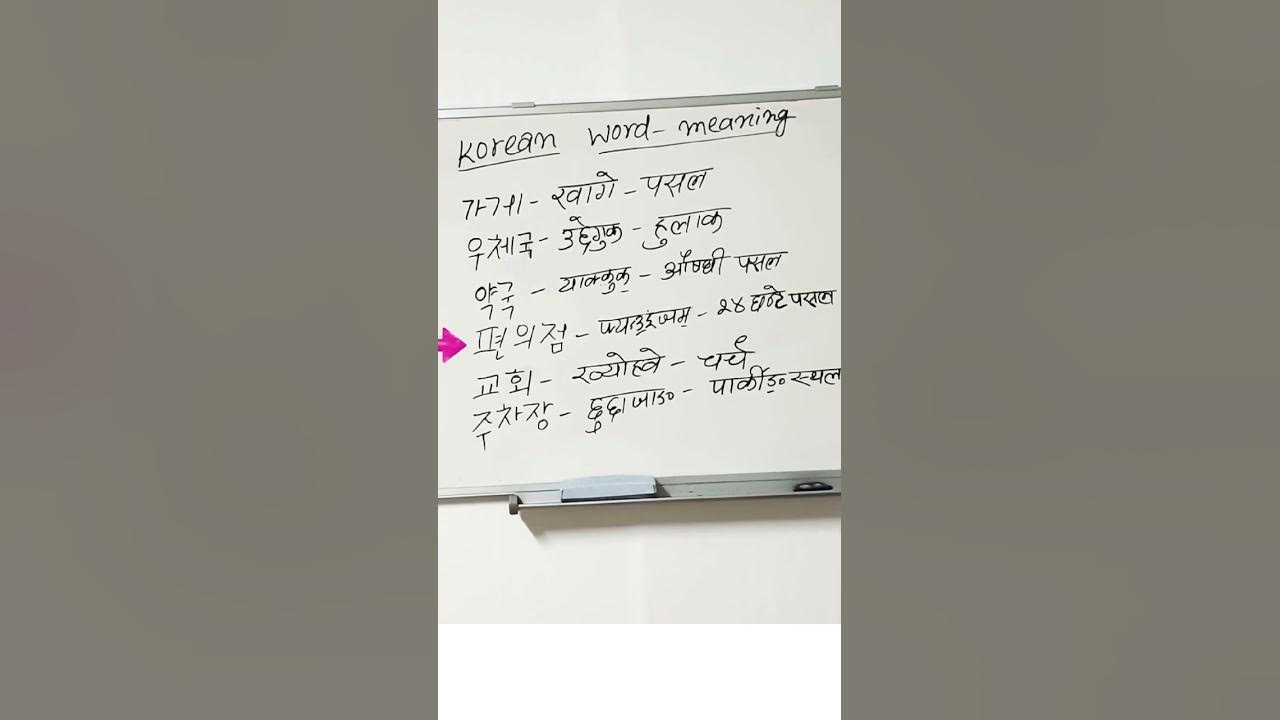 Korean word-meaning
가게 - खागे - पसल
우체국 - उछेगुक - हुलाक
약국 - याक्कुक् - औषधी पसल
편의점 - फ्यनउइजम् - २४ घण्टे पसल
교회 - ख्योहवे - चर्च
주차장 - छुछाजाङ - पार्कीङ स्थल